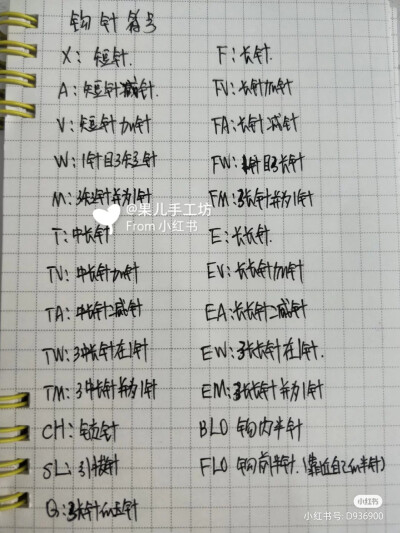 钩针符号
X: 短针. F: 长针.
A: 短针减针. FV: 长针加针
V: 短针加针 FA: 长针减针
W: 1针目3短针 FW: 1针目3长针
M: 3短针并为1针 FM: 3长针并为1针
@果儿手工坊
From 小红书
T: 中长针 E: 长长针.
TV: 中长针加针 EV: 长长针加针
TA: 中长针减针 EA: 长长针减针
TW: 3中长针在1针 EW: 3长长针在1针.
TM: 3中长针并为1针 EM: 3长长针并为1针
CH: 锁针 BLO 钩内半针
SL: 引拔针 FLO 钩前半针. (靠近自己的半针)
G: 3长针的针
小红书
小红书号: D936900